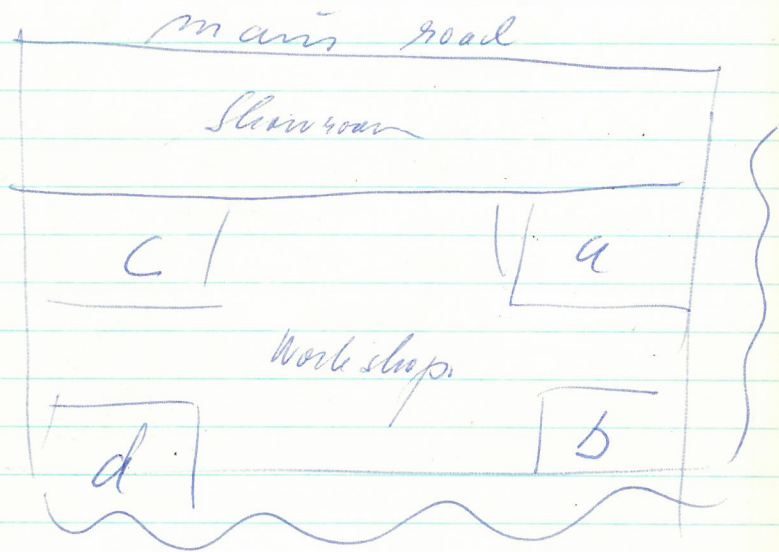 main road
Showroom
c a
Workshop.
d b